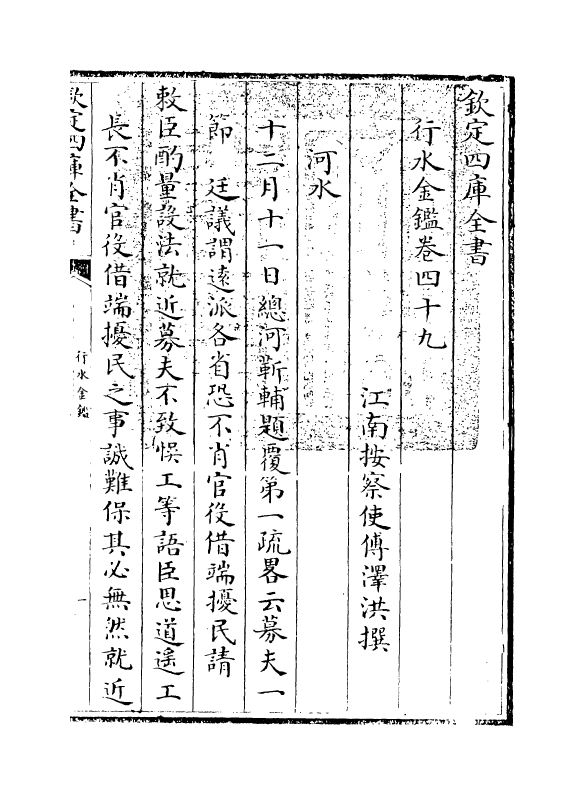 欽定四庫全書
行水金鑑卷四十九
江南按察使傅澤洪撰
河水
十二月十一日總河靳輔題覆第一疏畧云募夫一
節　廷議謂遠派各省恐不肖官役借端擾民請
敕臣酌量設法就近募夫不致悞工等語臣思道遙工
長不肖官役借端擾民之事誠難保其必無然就近
欽定四庫全書
行水金鑑
一